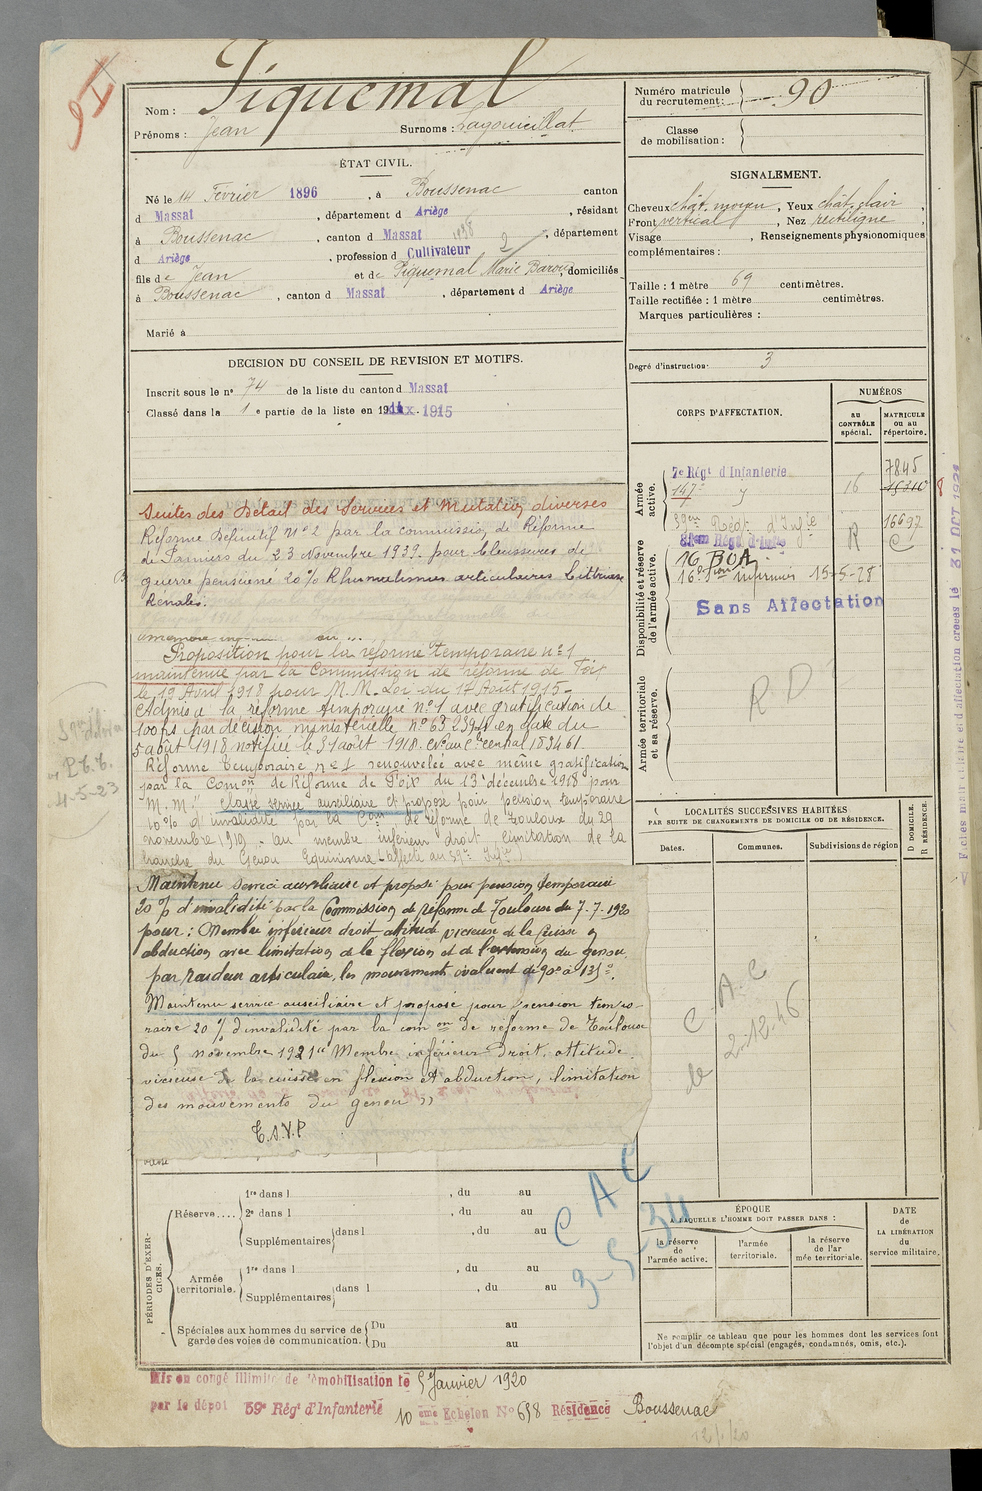 Nom : Piquemal
Prénoms : Jean Surnoms : Lagouieillat
ÉTAT CIVIL.
Né le 14 Février 1896, à Boussenac canton
d Massat, département d Ariège, résidant
à Boussenac, canton d Massat, département
d Ariège, profession d Cultivateur
fils de Jean et de Piquemal Marie domiciliés
à Boussenac, canton d Massat, département d Ariège
Marié à
DECISION DU CONSEIL DE REVISION ET MOTIFS.
Inscrit sous le n° 74 de la liste du canton d Massat
Classé dans la 1 e partie de la liste en 1915
Suites des Détail des Services et Mutations diverses
Réforme Définitif N° 2 par la commission de Réforme
de Pamiers du 23 Novembre 1939 pour blessures de
guerre pensionné 20% Rhumatismes articulaires
Rénales.
Proposition pour la réforme temporaire n° 1
maintenue par la Commission de réforme de Foix
le 19 Avril 1918 pour M. M. Loi du 17 Août 1915 -
Admis à la réforme temporaire n° 1 avec gratification de
100 fs par décision ministérielle n° 63239 en date du
5 août 1918 notifiée le 31 août 1918. central 183461
Réforme Temporaire n° 1 renouvelée avec même gratification
par la Comon de Réforme de Foix du 13 décembre 1918 pour
"M. M." Classé service auxiliaire et proposé pour pension temporaire
10 % d'invalidité par la Con de réforme de Toulouse du 29
novembre 1919. au membre inférieur droit limitation de la
du Genou Equinisme (affecté au 59e Infie)
Maintenu service auxiliaire et proposé pour pension temporaire
20 % d'invalidité par la Commission de réforme de Toulouse du 7.7.1920
pour : Membre inférieur droit attitude vicieuse de la cuisse en
abduction avec limitation de la flexion et de l'extension du genou
par raideur articulaire, les mouvements évoluent de 90° à 135°.
Maintenu service auxiliaire et proposé pour pension tempo-
raire 20 % d'invalidité par la comon de réforme de Toulouse
du 5 novembre 1921 "Membre inférieur droit, attitude
vicieuse de la cuisse en flexion et abduction, limitation
des mouvements du genou"
T.S.V.P
P.T.T.
4-5-23
PÉRIODES D'EXERCICES.
Réserve.... 1re dans l , du au
2e dans l , du au
Supplémentaires dans l , du au
Armée territoriale. 1re dans l , du au
Supplémentaires dans l , du au
Spéciales aux hommes du service de garde des voies de communication. Du au
Du au
CAC
3-5-34
Mis en congé illimité de démobilisation le 5 Janvier 1920
par le dépôt 59e Régt d'Infanterie 10 eme Echelon N° 698 Résidence Boussenac
12/1/20
Numéro matricule du recrutement : 90
Classe de mobilisation :
SIGNALEMENT.
Cheveux chât. moyen, Yeux chât. clair,
Front vertical, Nez rectiligne,
Visage , Renseignements physionomiques
complémentaires :
Taille : 1 mètre 69 centimètres.
Taille rectifiée : 1 mètre centimètres.
Marques particulières :
Degré d'instruction : 3
CORPS D'AFFECTATION.
NUMÉROS
AU CONTRÔLE spécial.
MATRICULE ou au répertoire.
Armée active.
7e Régt d'Infanterie 16 7845
147e
59eme Régt d'Infie R 16697
Disponibilité et réserve de l'armée active.
16 BOA
16e Son infirmiers 15-5-28
Sans Affectation
Armée territoriale et sa réserve.
RD
LOCALITÉS SUCCESSIVES HABITÉES
PAR SUITE DE CHANGEMENTS DE DOMICILE OU DE RÉSIDENCE.
Dates. Communes. Subdivisions de région
D DOMICILE.
R RÉSIDENCE.
C.A.C
de 2.12.46
ÉPOQUE
A LAQUELLE L'HOMME DOIT PASSER DANS :
la réserve de l'armée active.
l'armée territoriale.
la réserve de l'armée territoriale.
DATE de LA LIBÉRATION du service militaire.
Ne remplir ce tableau que pour les hommes dont les services font
l'objet d'un décompte spécial (engagés, condamnés, omis, etc.).
31 OCT 1921